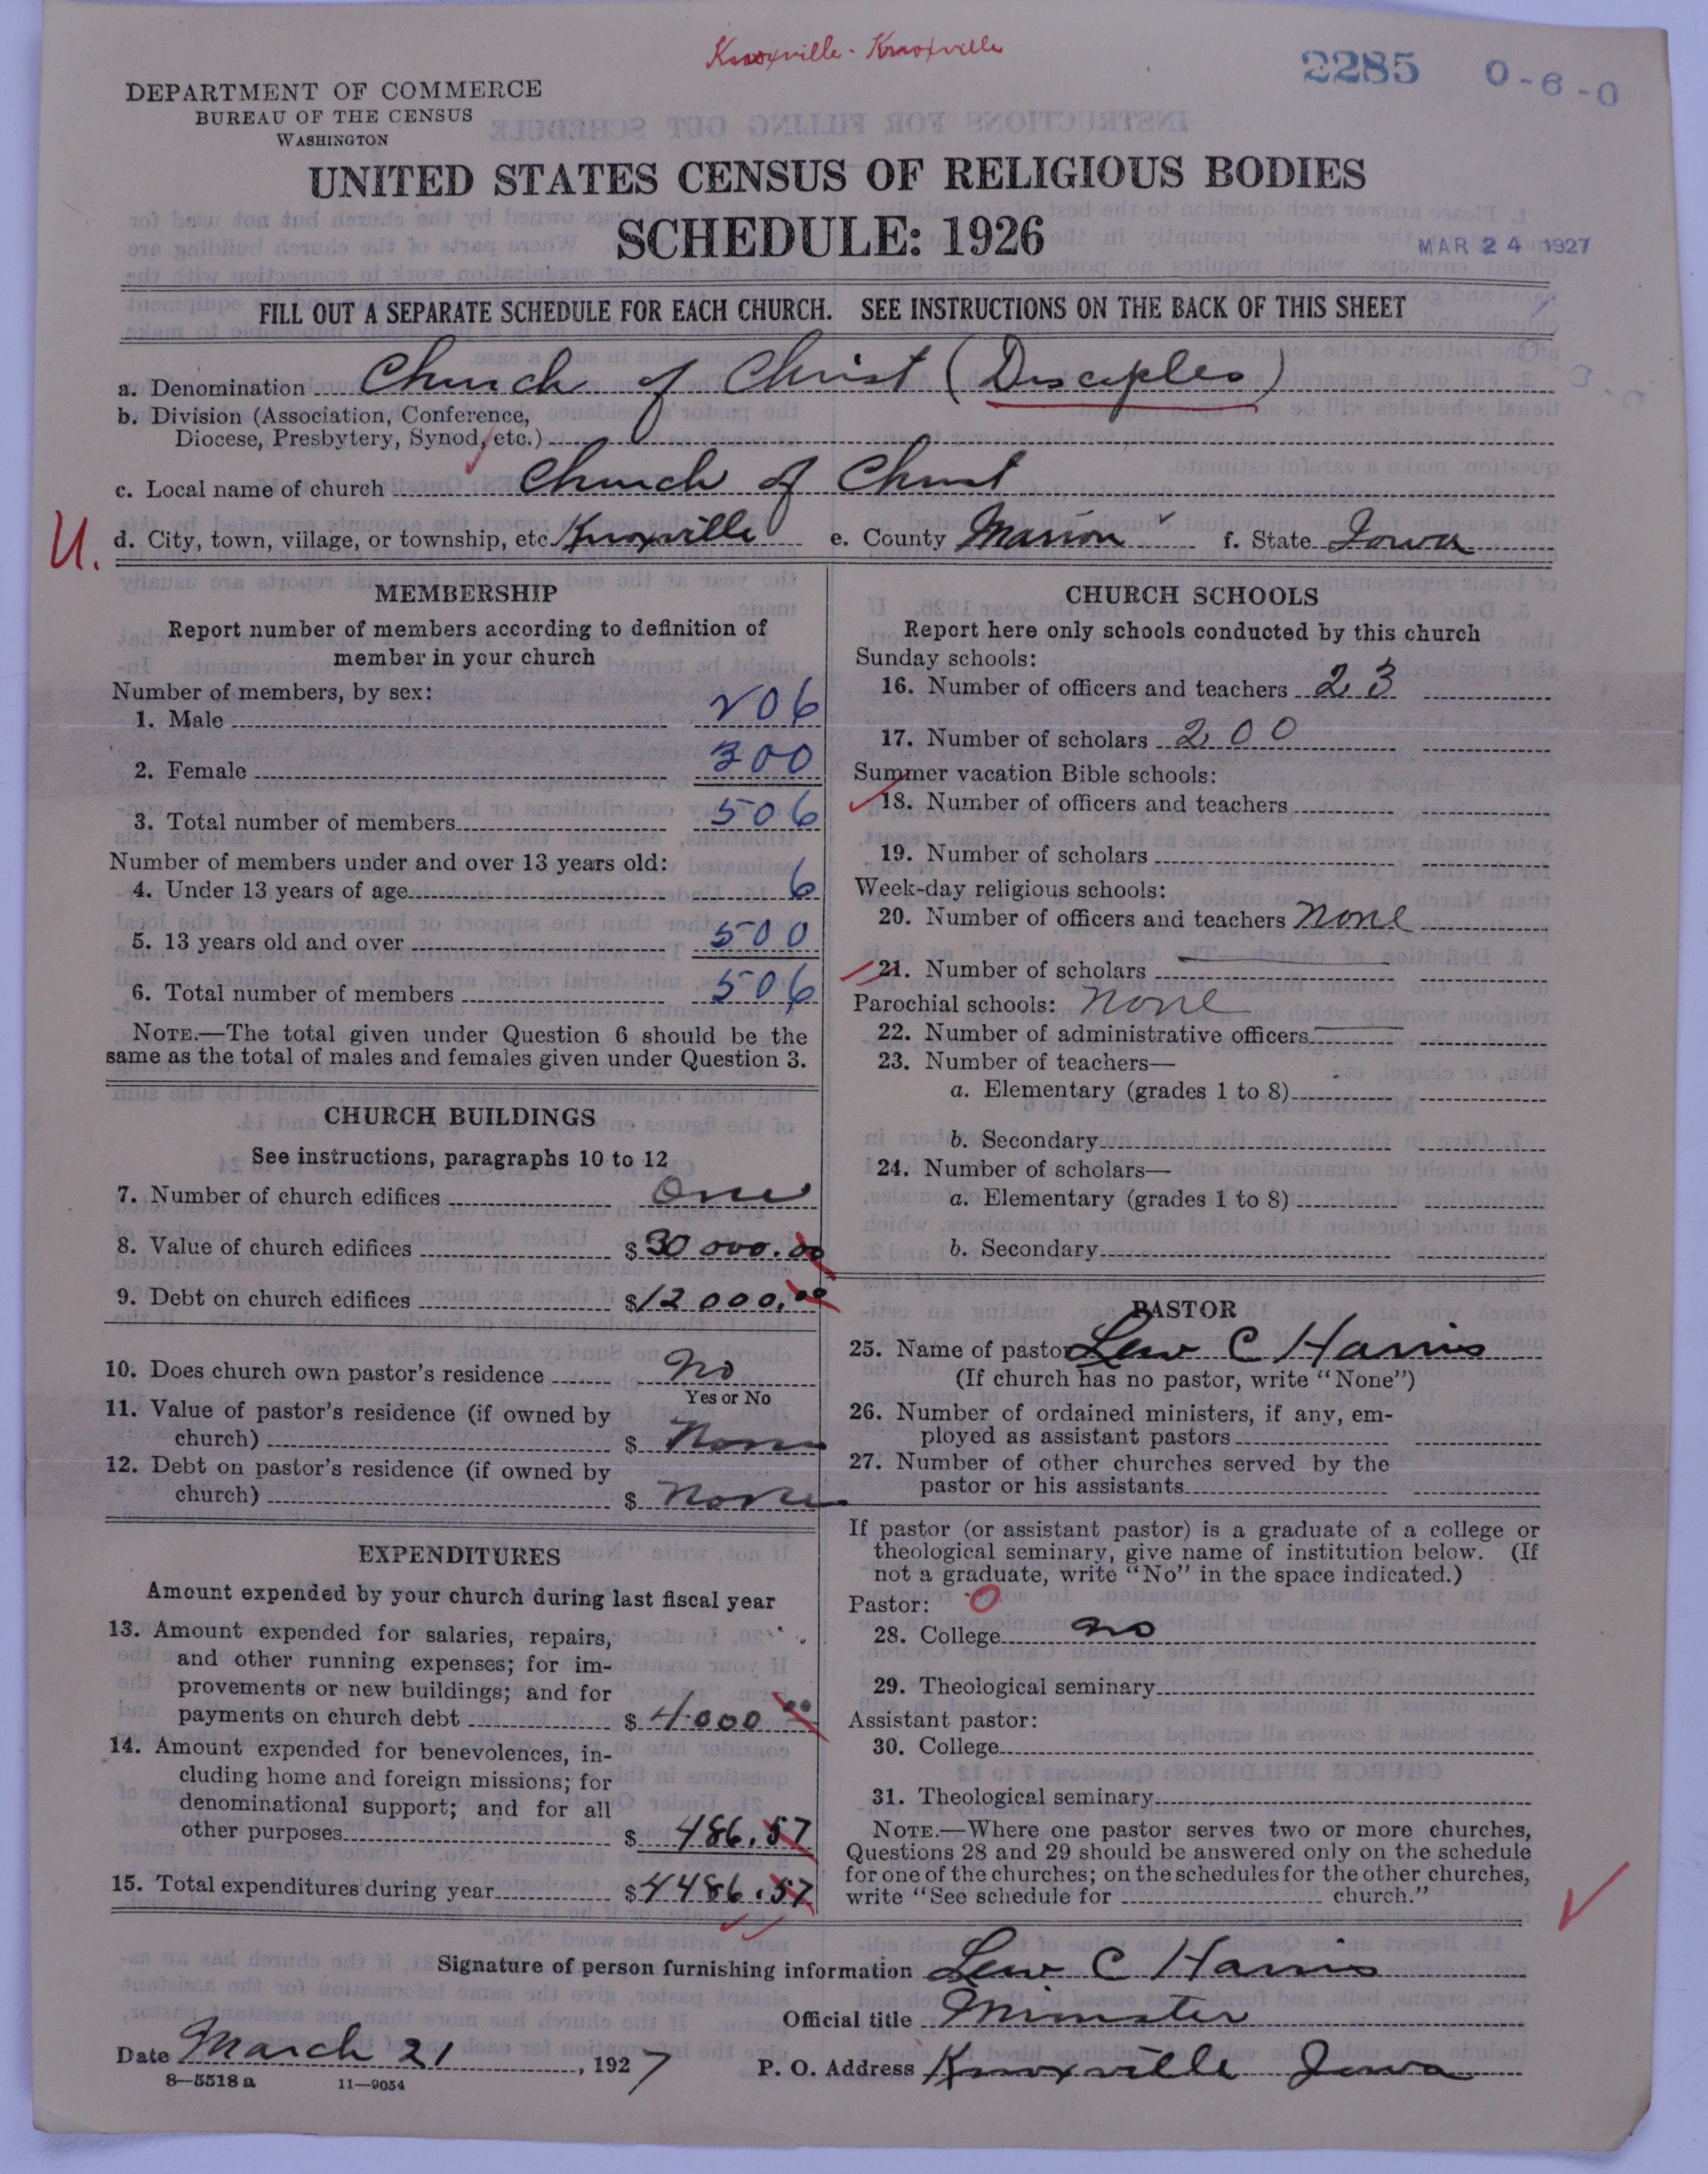 Knoxville - Knoxville
2285 0-6-0
DEPARTMENT OF COMMERCE
BUREAU OF THE CENSUS
WASHINGTON
UNITED STATES CENSUS OF RELIGIOUS BODIES
SCHEDULE: 1926
MAR 24 1927
FILL OUT A SEPARATE SCHEDULE FOR EACH CHURCH. SEE INSTRUCTIONS ON THE BACK OF THIS SHEET
a. Denomination Church of Christ (Disciples)
b. Division (Association, Conference,
Diocese, Presbytery, Synod, etc.)
c. Local name of church Church of Christ
U.
d. City, town, village, or township, etc. Knoxville e. County Marion f. State Iowa
MEMBERSHIP
Report number of members according to definition of
member in your church
Number of members, by sex:
1. Male 206
2. Female 300
3. Total number of members 506
Number of members under and over 13 years old:
4. Under 13 years of age 6
5. 13 years old and over 500
6. Total number of members 506
NOTE.—The total given under Question 6 should be the
same as the total of males and females given under Question 3.
CHURCH BUILDINGS
See instructions, paragraphs 10 to 12
7. Number of church edifices One
8. Value of church edifices $30000.00
9. Debt on church edifices $12000.00
10. Does church own pastor's residence No
Yes or No
11. Value of pastor's residence (if owned by
church) $ None
12. Debt on pastor's residence (if owned by
church) $ None
EXPENDITURES
Amount expended by your church during last fiscal year
13. Amount expended for salaries, repairs,
and other running expenses; for im-
provements or new buildings; and for
payments on church debt $ 4000 00
14. Amount expended for benevolences, in-
cluding home and foreign missions; for
denominational support; and for all
other purposes $ 486.57
15. Total expenditures during year $4486.57
CHURCH SCHOOLS
Report here only schools conducted by this church
Sunday schools:
16. Number of officers and teachers 23
17. Number of scholars 200
Summer vacation Bible schools:
18. Number of officers and teachers
19. Number of scholars
Week-day religious schools:
20. Number of officers and teachers None
21. Number of scholars
Parochial schools: None
22. Number of administrative officers
23. Number of teachers—
a. Elementary (grades 1 to 8)
b. Secondary
24. Number of scholars—
a. Elementary (grades 1 to 8)
b. Secondary
PASTOR
25. Name of pastor Lew C Harris
(If church has no pastor, write "None")
26. Number of ordained ministers, if any, em-
ployed as assistant pastors
27. Number of other churches served by the
pastor or his assistants
If pastor (or assistant pastor) is a graduate of a college or
theological seminary, give name of institution below. (If
not a graduate, write "No" in the space indicated.)
Pastor: 0
28. College no
29. Theological seminary
Assistant pastor:
30. College
31. Theological seminary
NOTE.—Where one pastor serves two or more churches,
Questions 28 and 29 should be answered only on the schedule
for one of the churches; on the schedules for the other churches,
write "See schedule for church."
Signature of person furnishing information Lew C Harris
Official title Minister
Date March 21, 1927 P. O. Address Knoxville Iowa
8—5518 a 11—9054